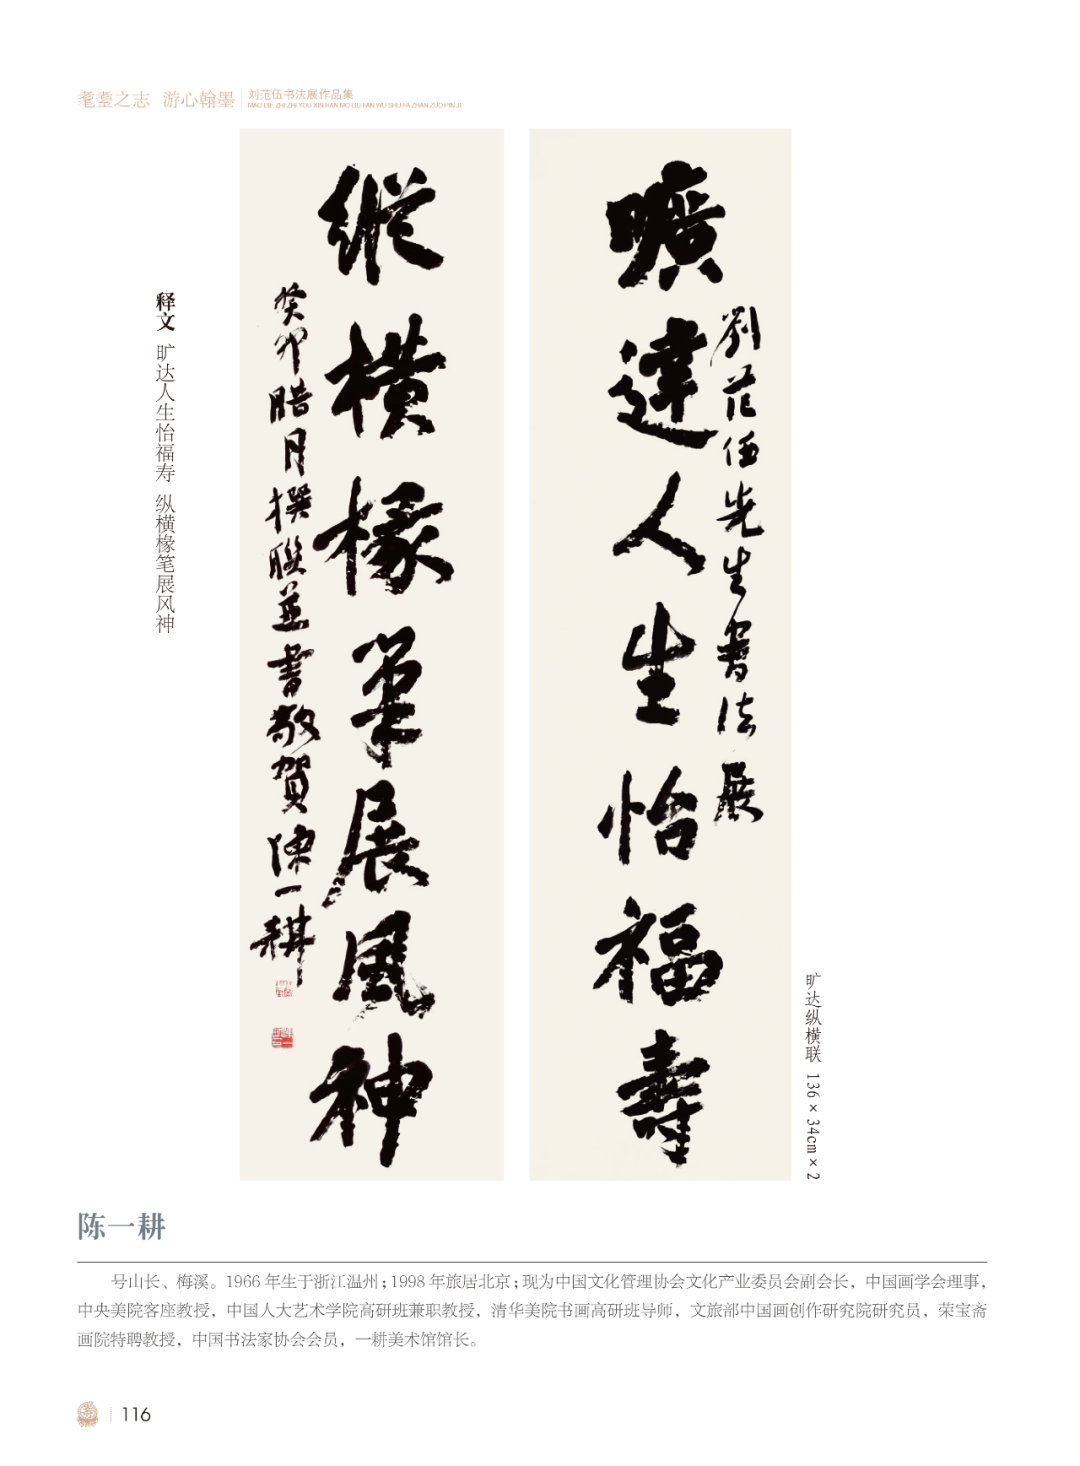 耄耋之志 游心翰墨
刘范伍书法展作品集
MAO DIE ZHI ZHI YOU XIN HAN MO LIU FAN WU SHU FA ZHAN ZUO PIN JI
劉范伍先生書法展
曠達人生怡福壽
縱橫椽筆展風神
癸卯腊月撰聯並書敬賀陳一耕
释文 旷达人生怡福寿 纵横椽笔展风神
旷达纵横联 136×34cm×2
陈一耕
号山长、梅溪。1966年生于浙江温州；1998年旅居北京；现为中国文化管理协会文化产业委员会副会长，中国画学会理事，
中央美院客座教授，中国人大艺术学院高研班兼职教授，清华美院书画高研班导师，文旅部中国画创作研究院研究员，荣宝斋
画院特聘教授，中国书法家协会会员，一耕美术馆馆长。
116